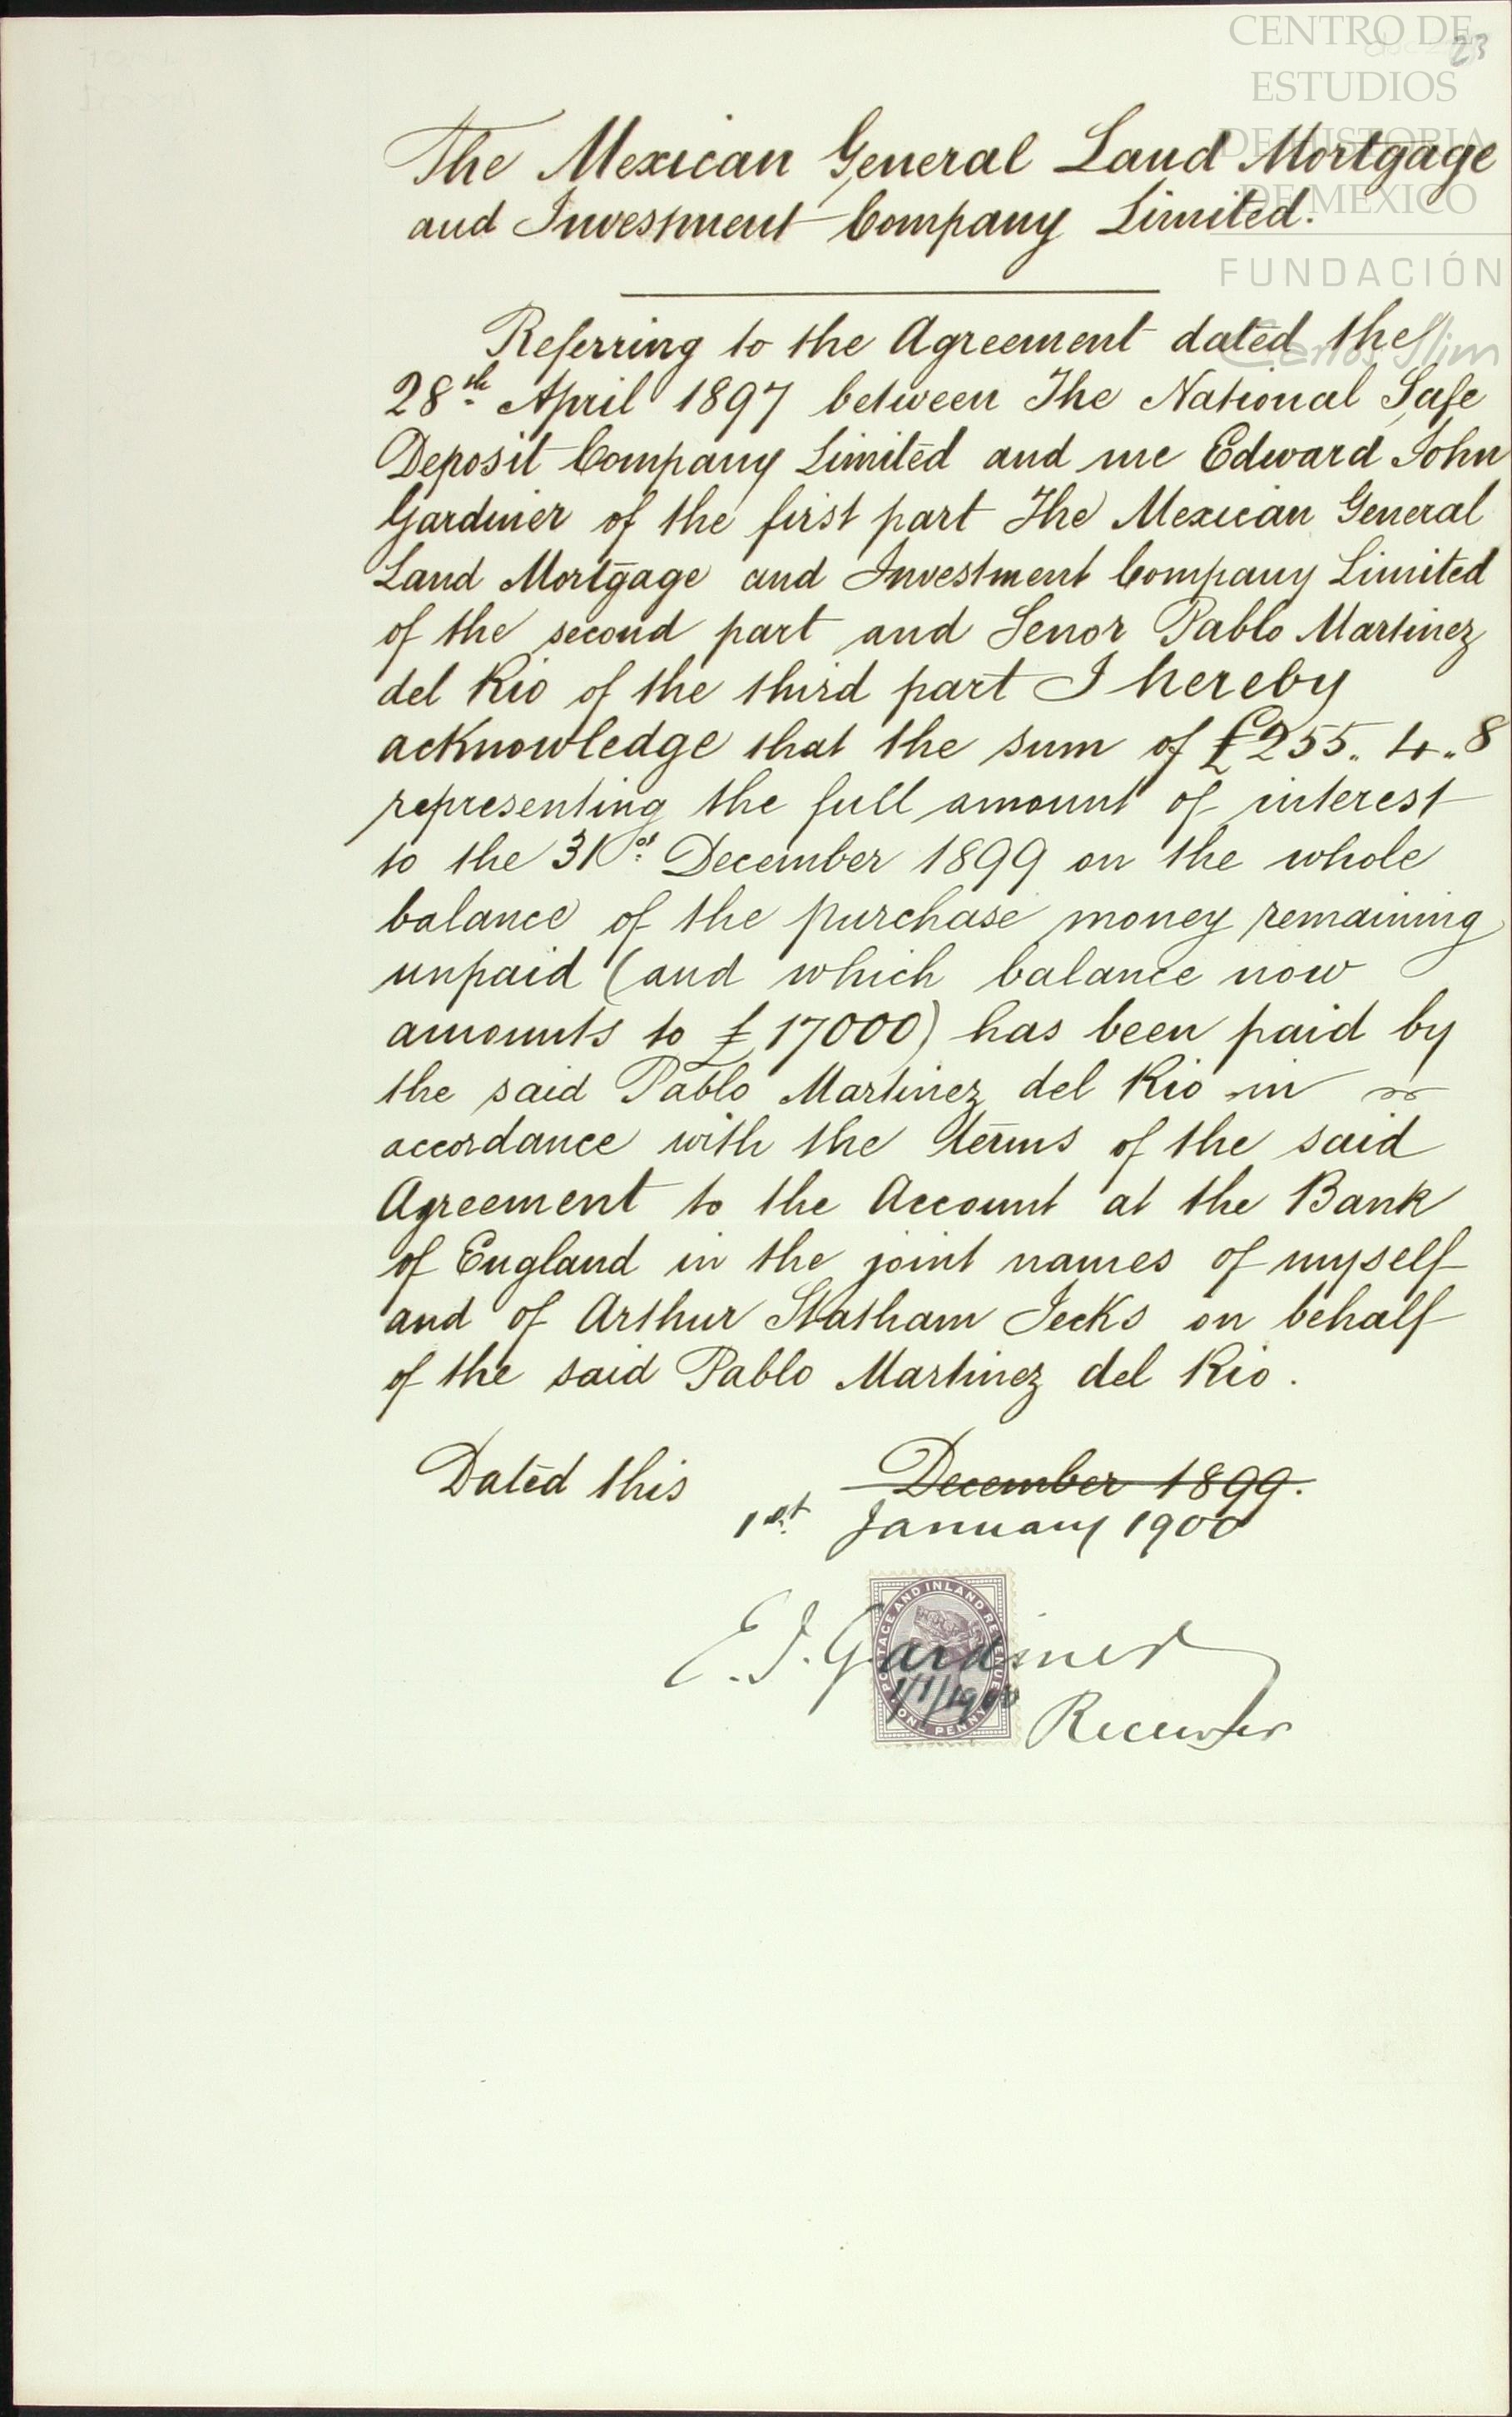 CENTRO DE
ESTUDIOS
DE HISTORIA
DE MEXICO
FUNDACIÓN
Carlos Slim
23
The Mexican General Land Mortgage
and Investment Company Limited.
Referring to the Agreement dated the
28th April 1897 between The National Safe
Deposit Company Limited and me Edward John
Gardiner of the first part The Mexican General
Land Mortgage and Investment Company Limited
of the second part and Senor Pablo Martinez
del Rio of the third part I hereby
acknowledge that the sum of £255. 4. 8
representing the full amount of interest
to the 31st December 1899 on the whole
balance of the purchase money remaining
unpaid (and which balance now
amounts to £17000) has been paid by
the said Pablo Martinez del Rio in
accordance with the terms of the said
Agreement to the Account at the Bank
of England in the joint names of myself
and of Arthur Statham Jecks on behalf
of the said Pablo Martinez del Rio.
Dated this December 1899.
1st January 1900
POSTAGE AND INLAND REVENUE
E. J. Gardiner
1/1/1900
ONE PENNY
Receiver